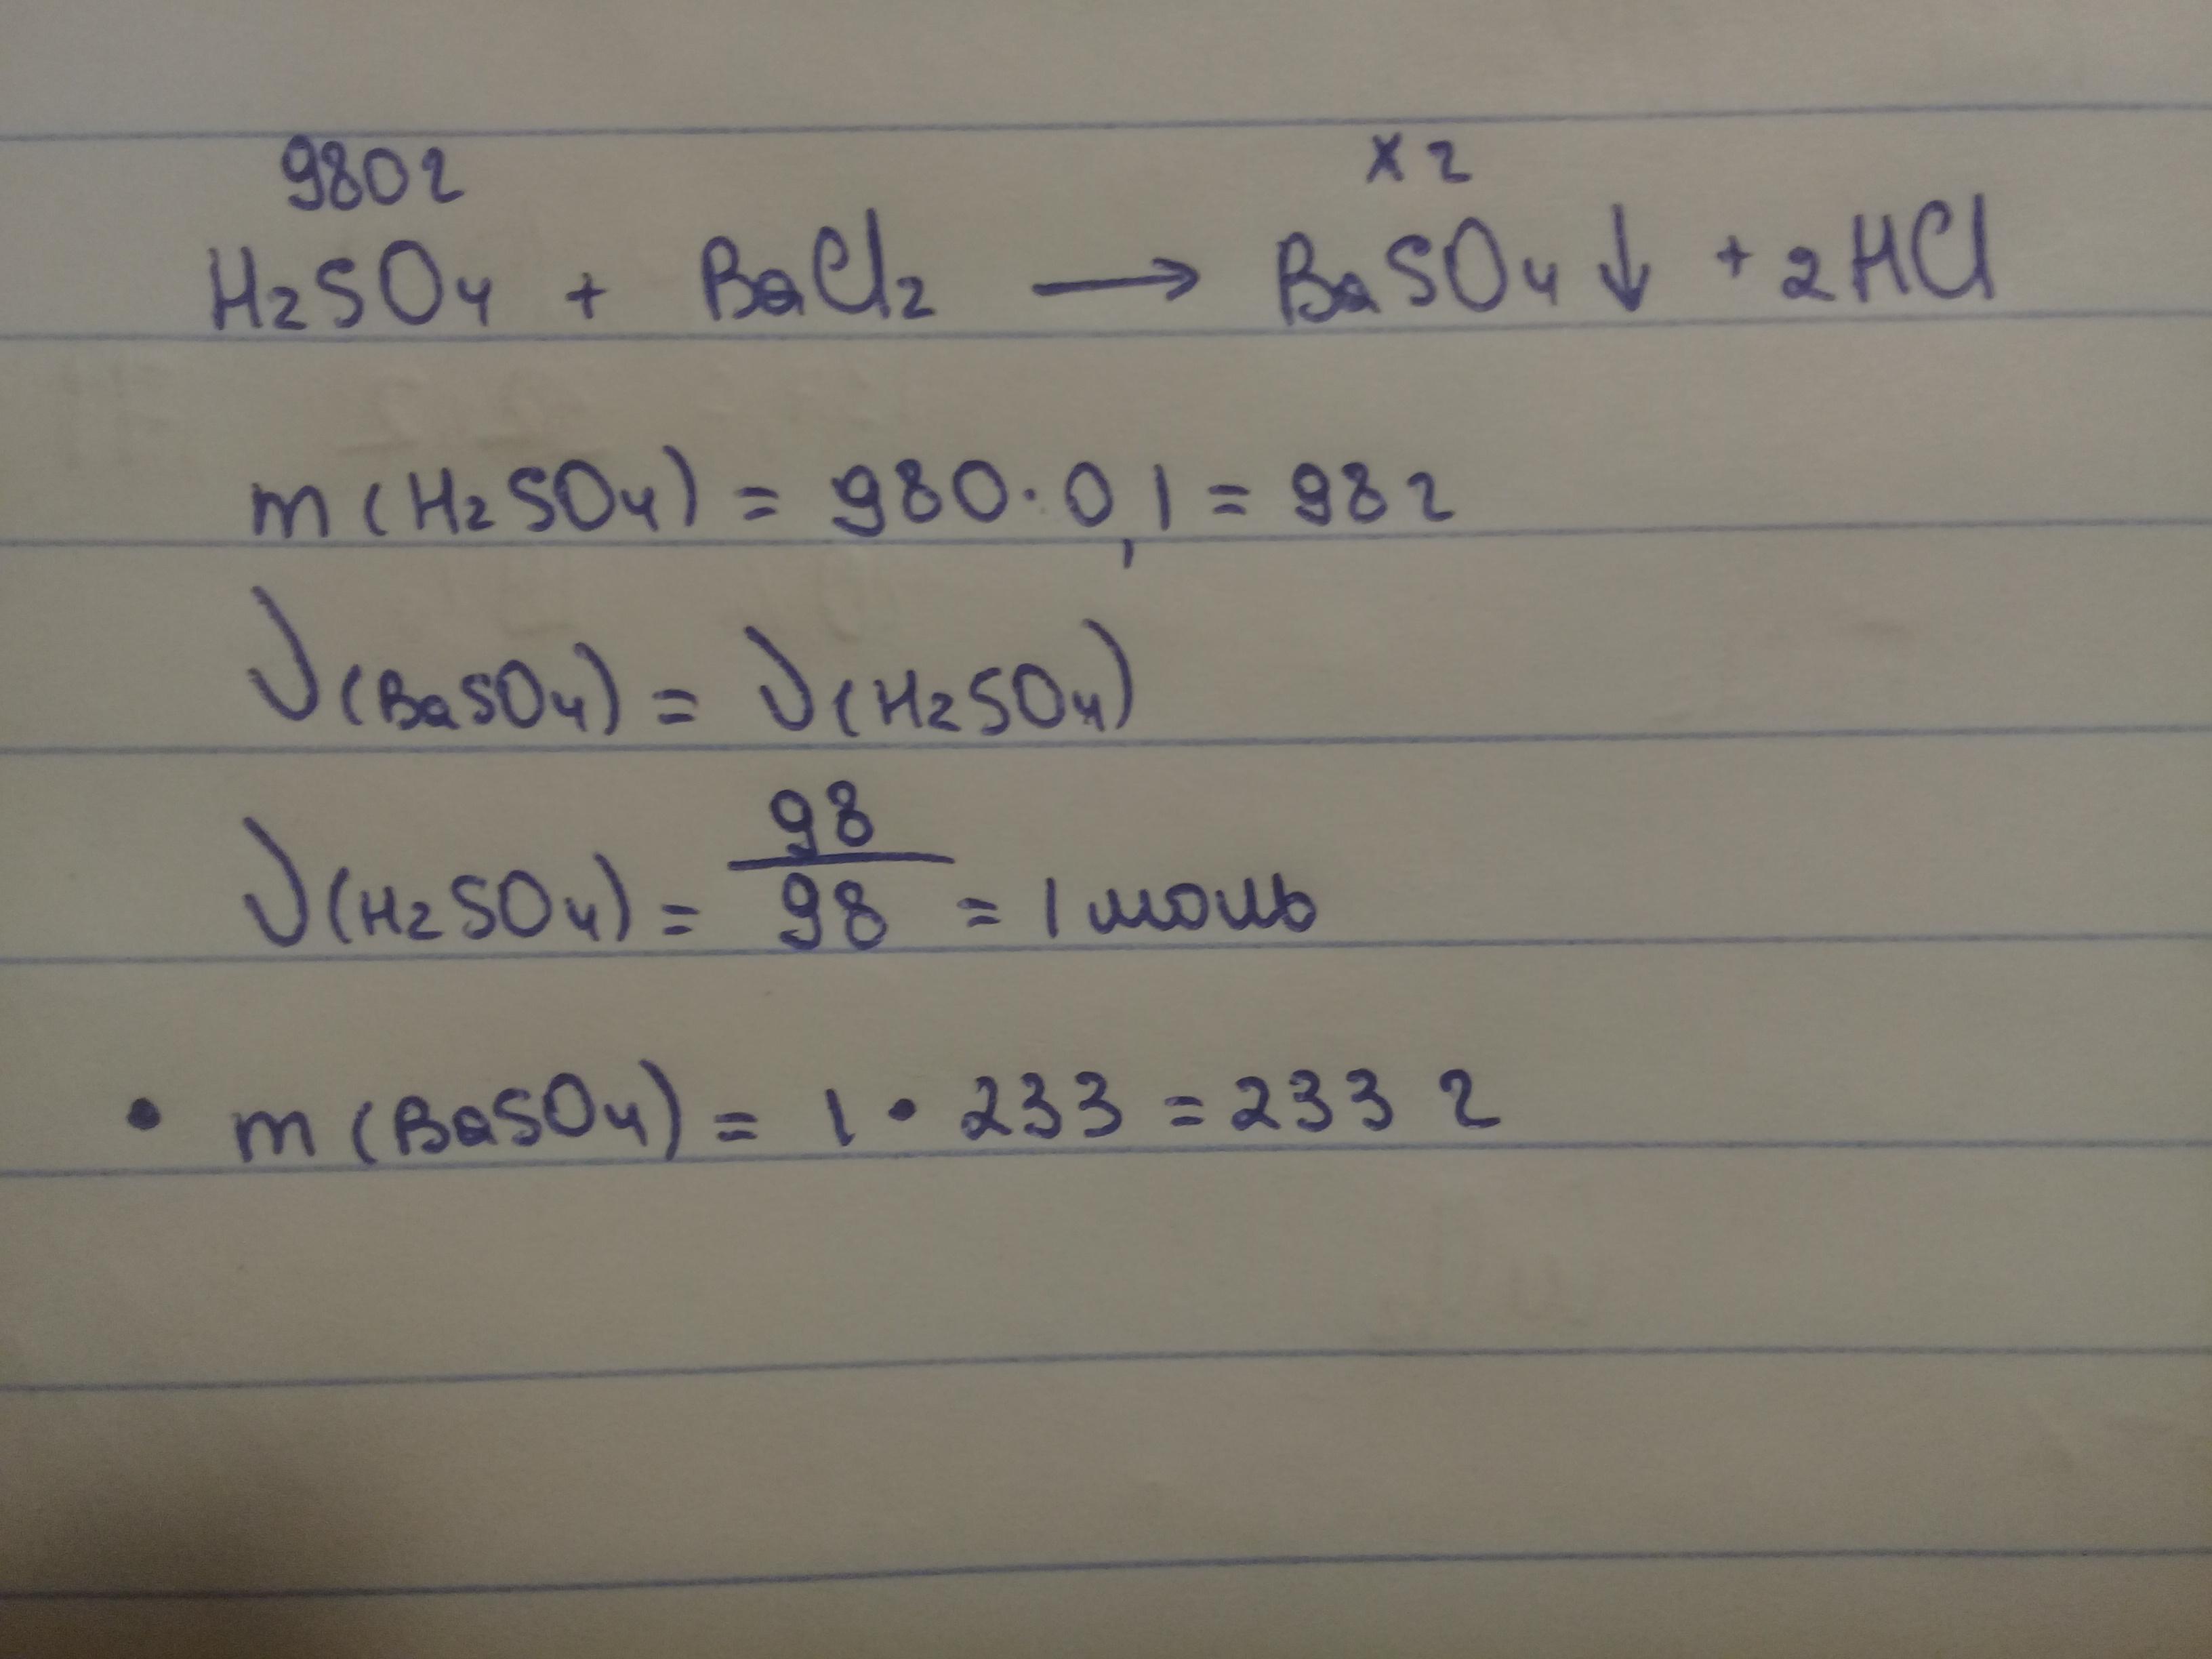 980г x г
H2SO4 + BaCl2 → BaSO4↓ + 2HCl
m(H2SO4) = 980·0,1 = 98г
ν(BaSO4) = ν(H2SO4)
ν(H2SO4) = 98/98 = 1 моль
• m(BaSO4) = 1 • 233 = 233 г